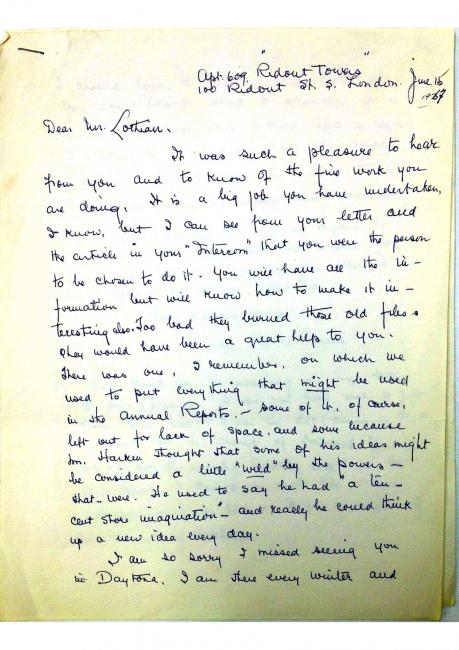 Apt. 609, "Ridout Towers"
100 Ridout St. S. London.
June 15
1967
Dear Mr. Lothian,
It was such a pleasure to hear
from you and to know of the fine work you
are doing. It is a big job you have undertaken,
I know, but I can see from your letter and
the article in your "Intercom" that you were the person
to be chosen to do it. You will have all the in-
formation but will know how to make it in-
teresting also. Too bad they burned those old files.
They would have been a great help to you.
There was one, I remember, on which we
used to put everything that might be used
in the Annual Reports, – some of it, of course,
left out for lack of space, and some because
Mr. Harkin thought that some of his ideas might
be considered a little "wild" by the powers –
that – were. He used to say he had "a ten –
cent store imagination" – and really he could think
up a new idea every day.
I am so sorry I missed seeing you
in Daytona. I am there every winter and